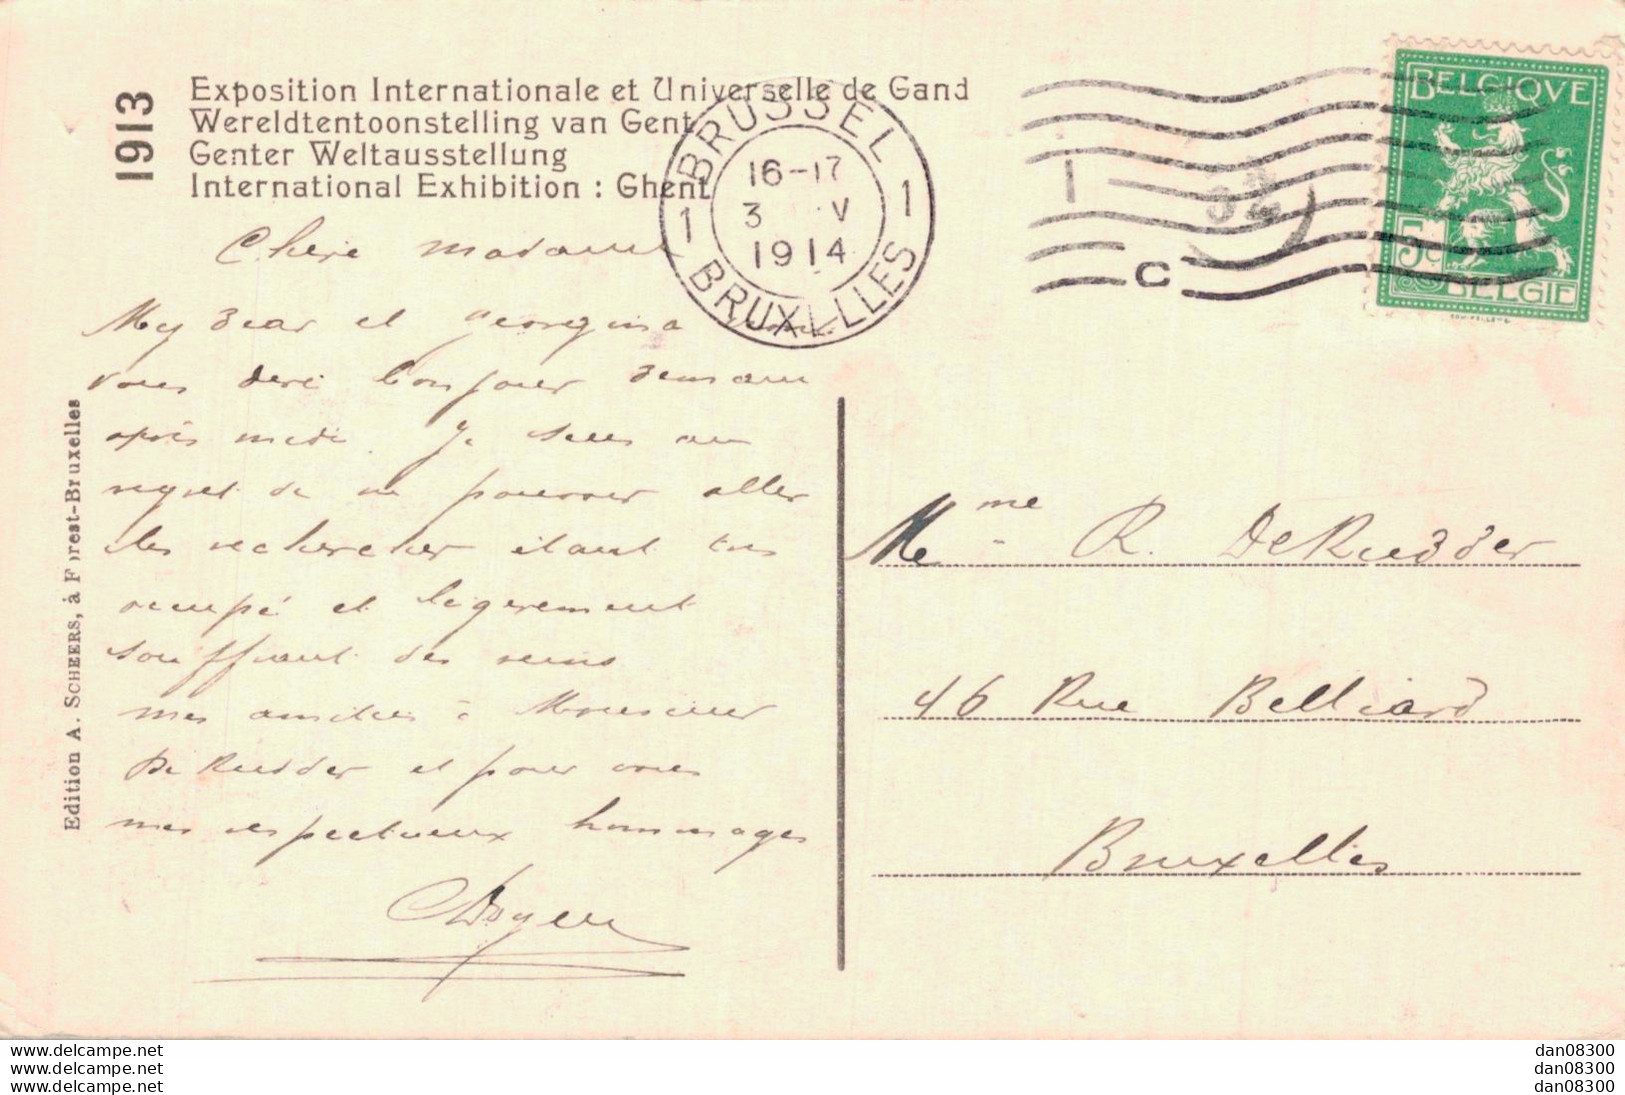 1913
Exposition Internationale et Universelle de Gand
Wereldtentoonstelling van Gent
Genter Weltausstellung
International Exhibition : Ghent
BRUSSEL
1 16-17 1
3 V
1914
BRUXELLES
BELGIQVE
5c
BELGIË
C
Chère madame
My dear et Georgina
vous dire bonjour demain
après midi. Je suis au
regret de ne pouvoir aller
les rechercher étant très
occupé et légèrement
souffrant des reins
mes amitiés à Monsieur
De Rudder et pour vous
mes respectueux hommages
CDoyen
Mme R. De Rudder
46 Rue Belliard
Bruxelles
Edition A. SCHEERS, à Forest-Bruxelles
delcampe.net
delcampe.net
delcampe.net
dan08300
dan08300
dan08300